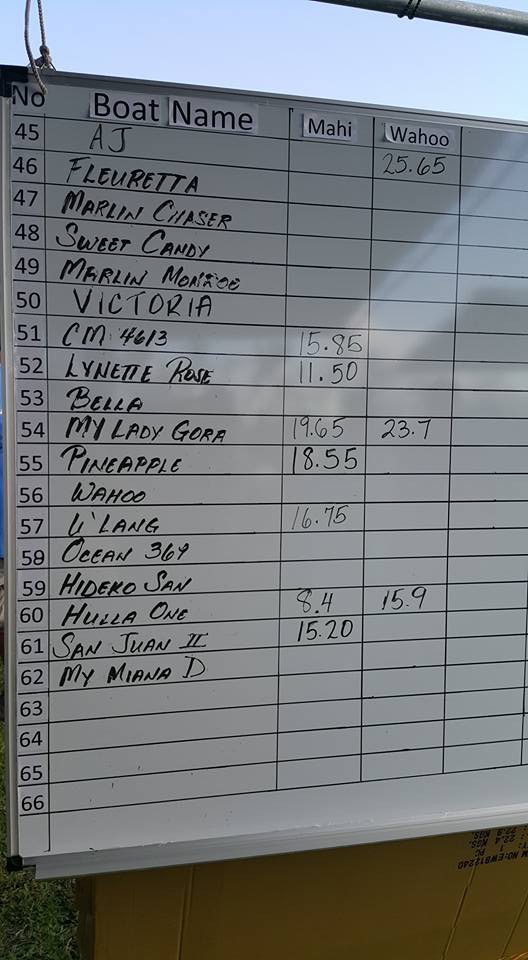 No Boat Name Mahi Wahoo
45 AJ
46 FLEURETTA 25.65
47 MARLIN CHASER
48 SWEET CANDY
49 MARLIN MONROE
50 VICTORIA
51 CM 4613 15.85
52 LYNETTE ROSE 11.50
53 BELLA
54 MY LADY GORA 19.65 23.7
55 PINEAPPLE 18.55
56 WAHOO
57 U'LANG 16.75
58 OCEAN 369
59 HIDEKO SAN
60 HULLA ONE 8.4 15.9
61 SAN JUAN II 15.20
62 MY MIANA D
63
64
65
66
NO:EWB12240
1 PC
22.4 KGS.